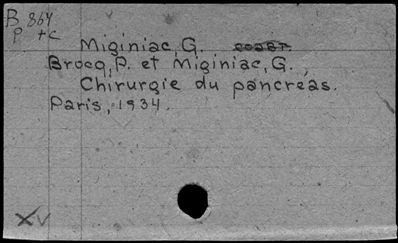 B 864
P +c
Miginiac, G.
Brocq, P. et Miginiac, G.,
Chirurgie du pancreas.
Paris, 1934.
XV